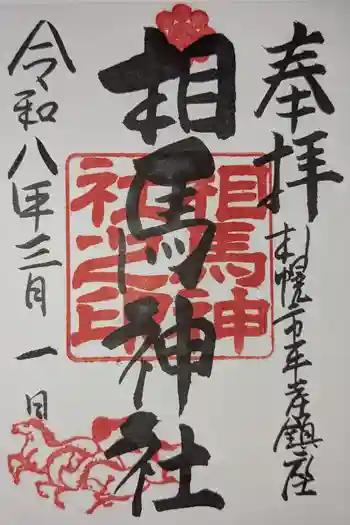 奉拝
札幌市平岸鎮座
相馬神社
相馬神
社之印
令和八年三月一日